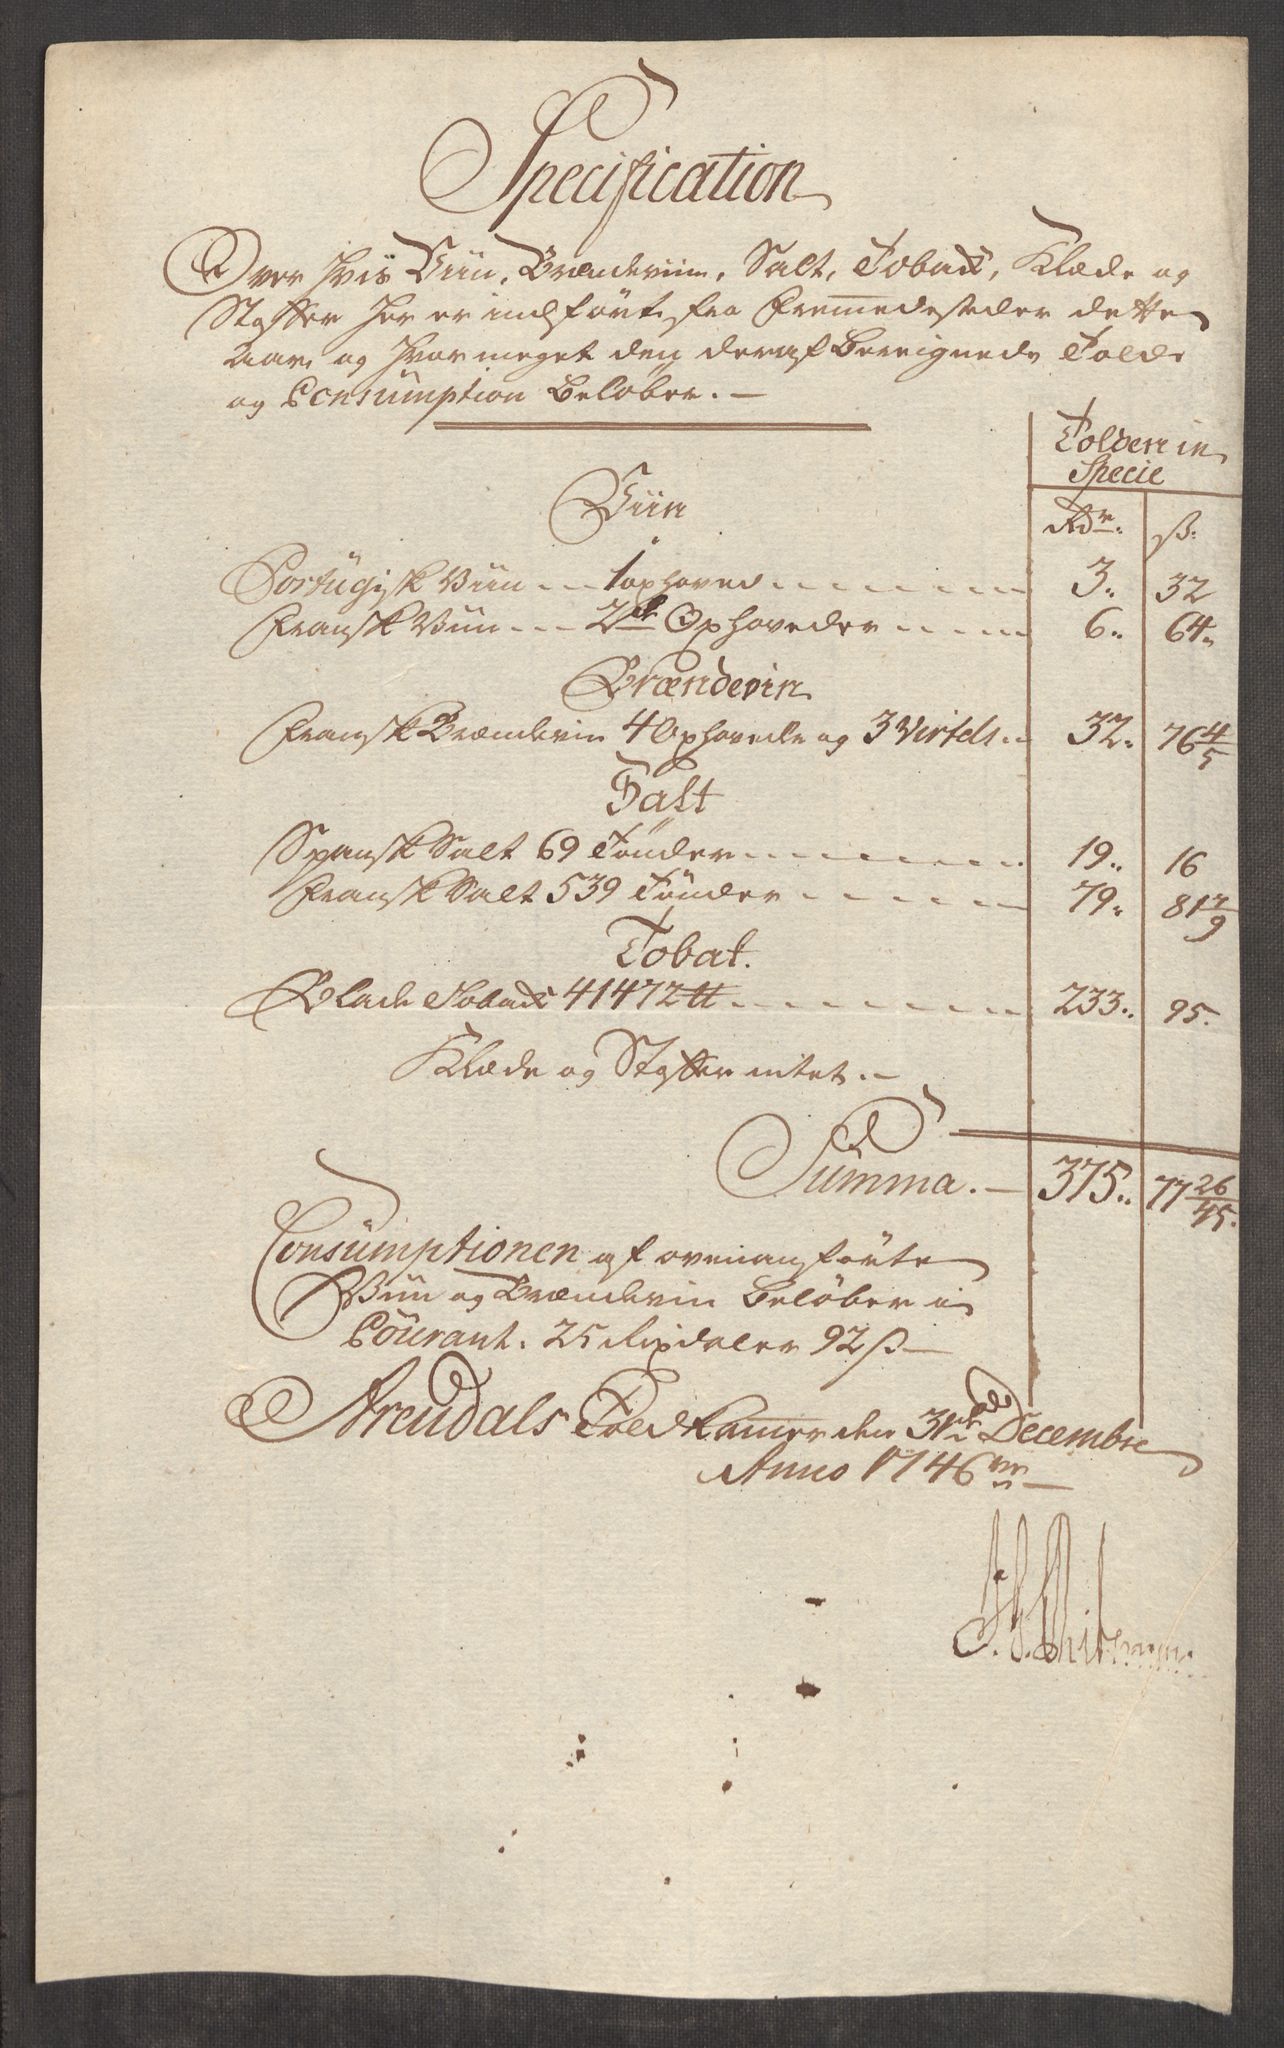 Specification
Over hvis Viin, Brændeviin, Salt, Toback, Klæde og
Stoffer her er indført fra Fremmede steder dette
Aar, og hvor meget den deraf Bereignede Told
og Consumption Beløber. —
Tolden in
Specie
Rdr. ß.
Viin
Portugisk Viin - - 1 oxhoved - - - - - 3. 32
Fransk Viin - - - 2de Oxhoveder - - - - 6. 64.
Brændevin
Fransk Brændevin 4 Oxhovede og 3 Virtels - 32. 76 4/5
Salt
Spansk Salt 69 Tønder - - - - - - - 19. 16
Fransk Salt 539 Tønder - - - - - 79. 81 7/9
Tobak.
Blade Toback 41472 ℔ - - - - - - 233. 95.
Klæde og Stoffer intet. —
Summa. — 375. 77 26/45.
Consumptionen af ovenanførte
Viin og Brændevin Beløber i
Courant. 25 Rixdaler 92 ß —
Arendals Told Kammer den 31de Decembre
Anno 1746 —